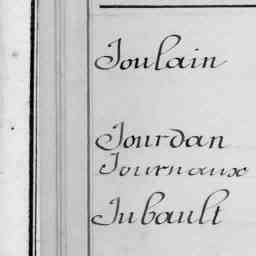 Joulain
Jourdan
Journaux
Jubault